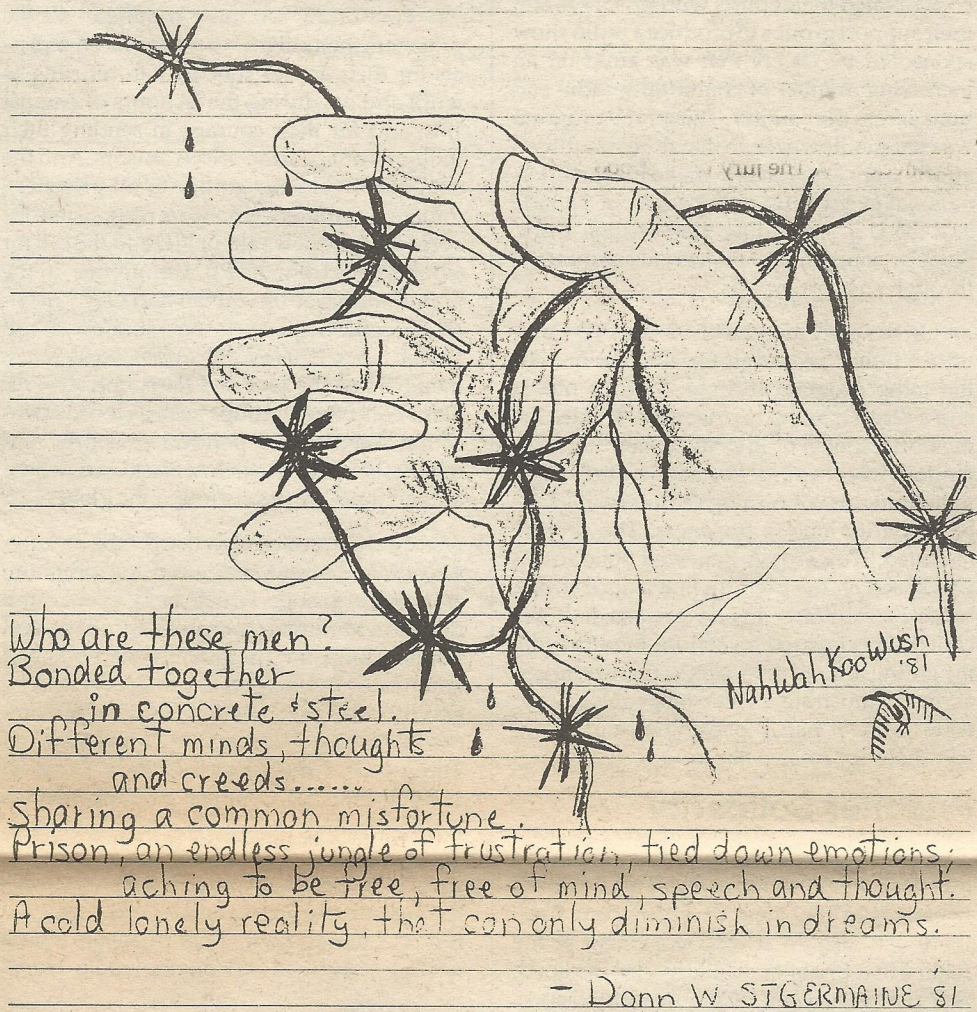 The jury
NahWahKooWush
'81
Who are these men?
Bonded together
in concrete & steel.
Different minds, thoughts
and creeds......
Sharing a common misfortune.
Prison, an endless jungle of frustration, tied down emotions;
aching to be free, free of mind, speech and thought.
A cold lonely reality, that can only diminish in dreams.
- Donn W STGERMAINE '81